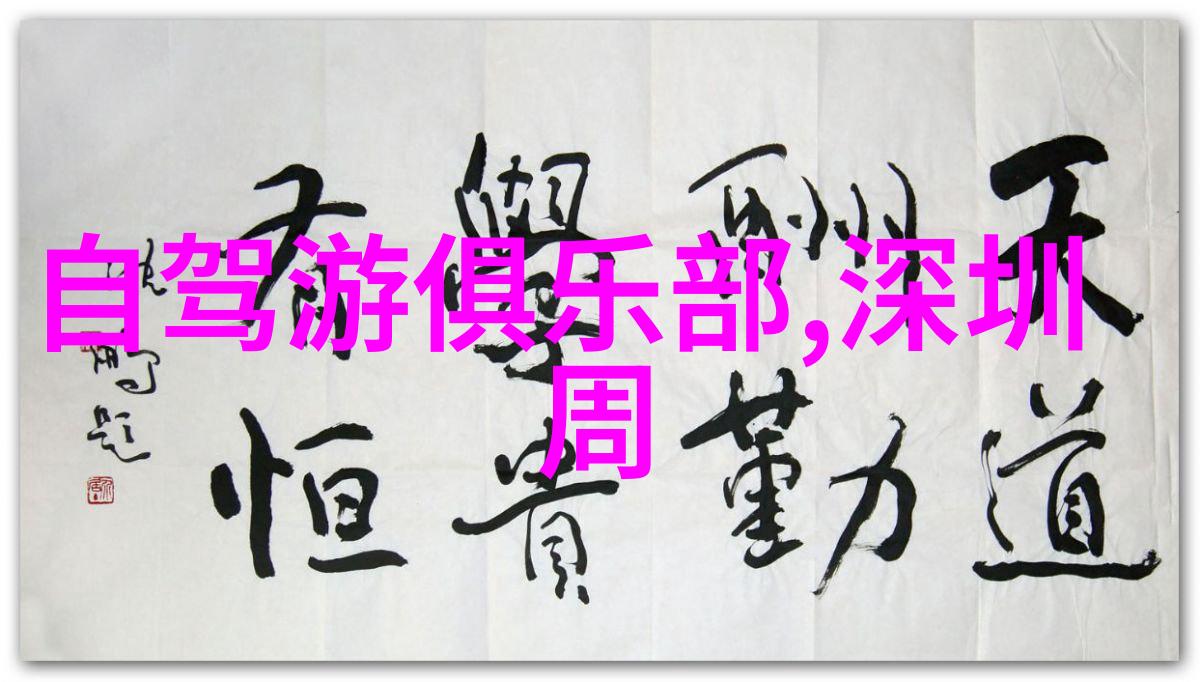 自驾游俱乐部,深圳
周
天道
酬勤
學貴
有恒
沈鹏题